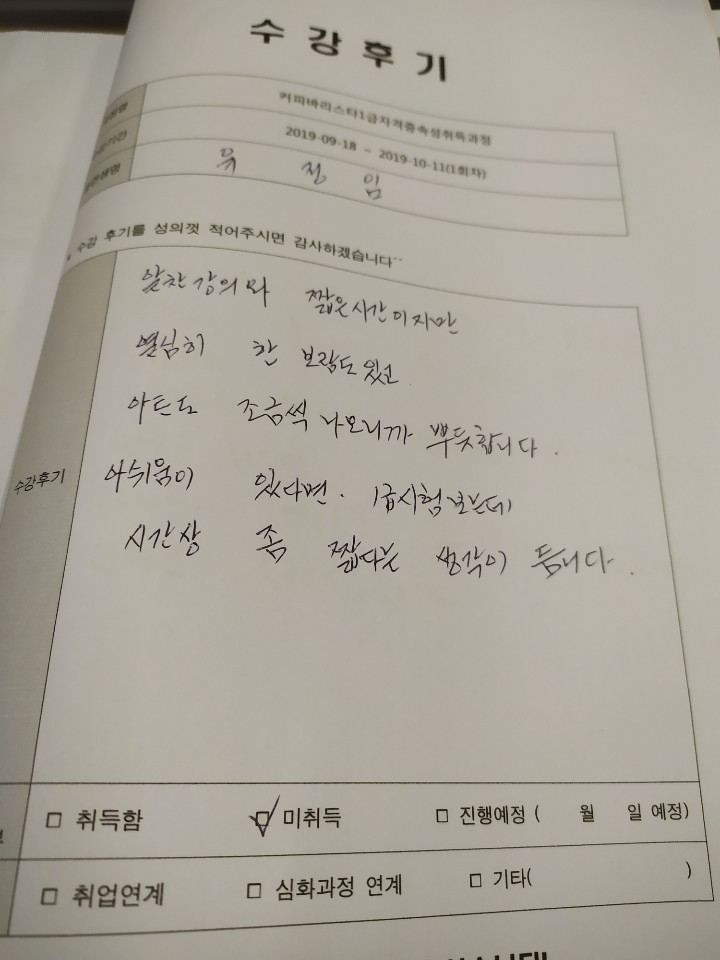 수강후기
커피바리스타1급자격증속성취득과정
기간
2019-09-18 ~ 2019-10-11(1회차)
유정임
수강 후기를 성의껏 적어주시면 감사하겠습니다^^
수강후기
알찬강의와 짧은시간이지만
열심히 한 보람도 있고
아트도 조금씩 나오니까 뿌듯합니다.
아쉬움이 있다면. 1급시험 보는데
시간상 좀 짧다는 생각이 듭니다.
□ 취득함 ☑ 미취득 □ 진행예정 ( 월 일 예정)
□ 취업연계 □ 심화과정 연계 □ 기타( )